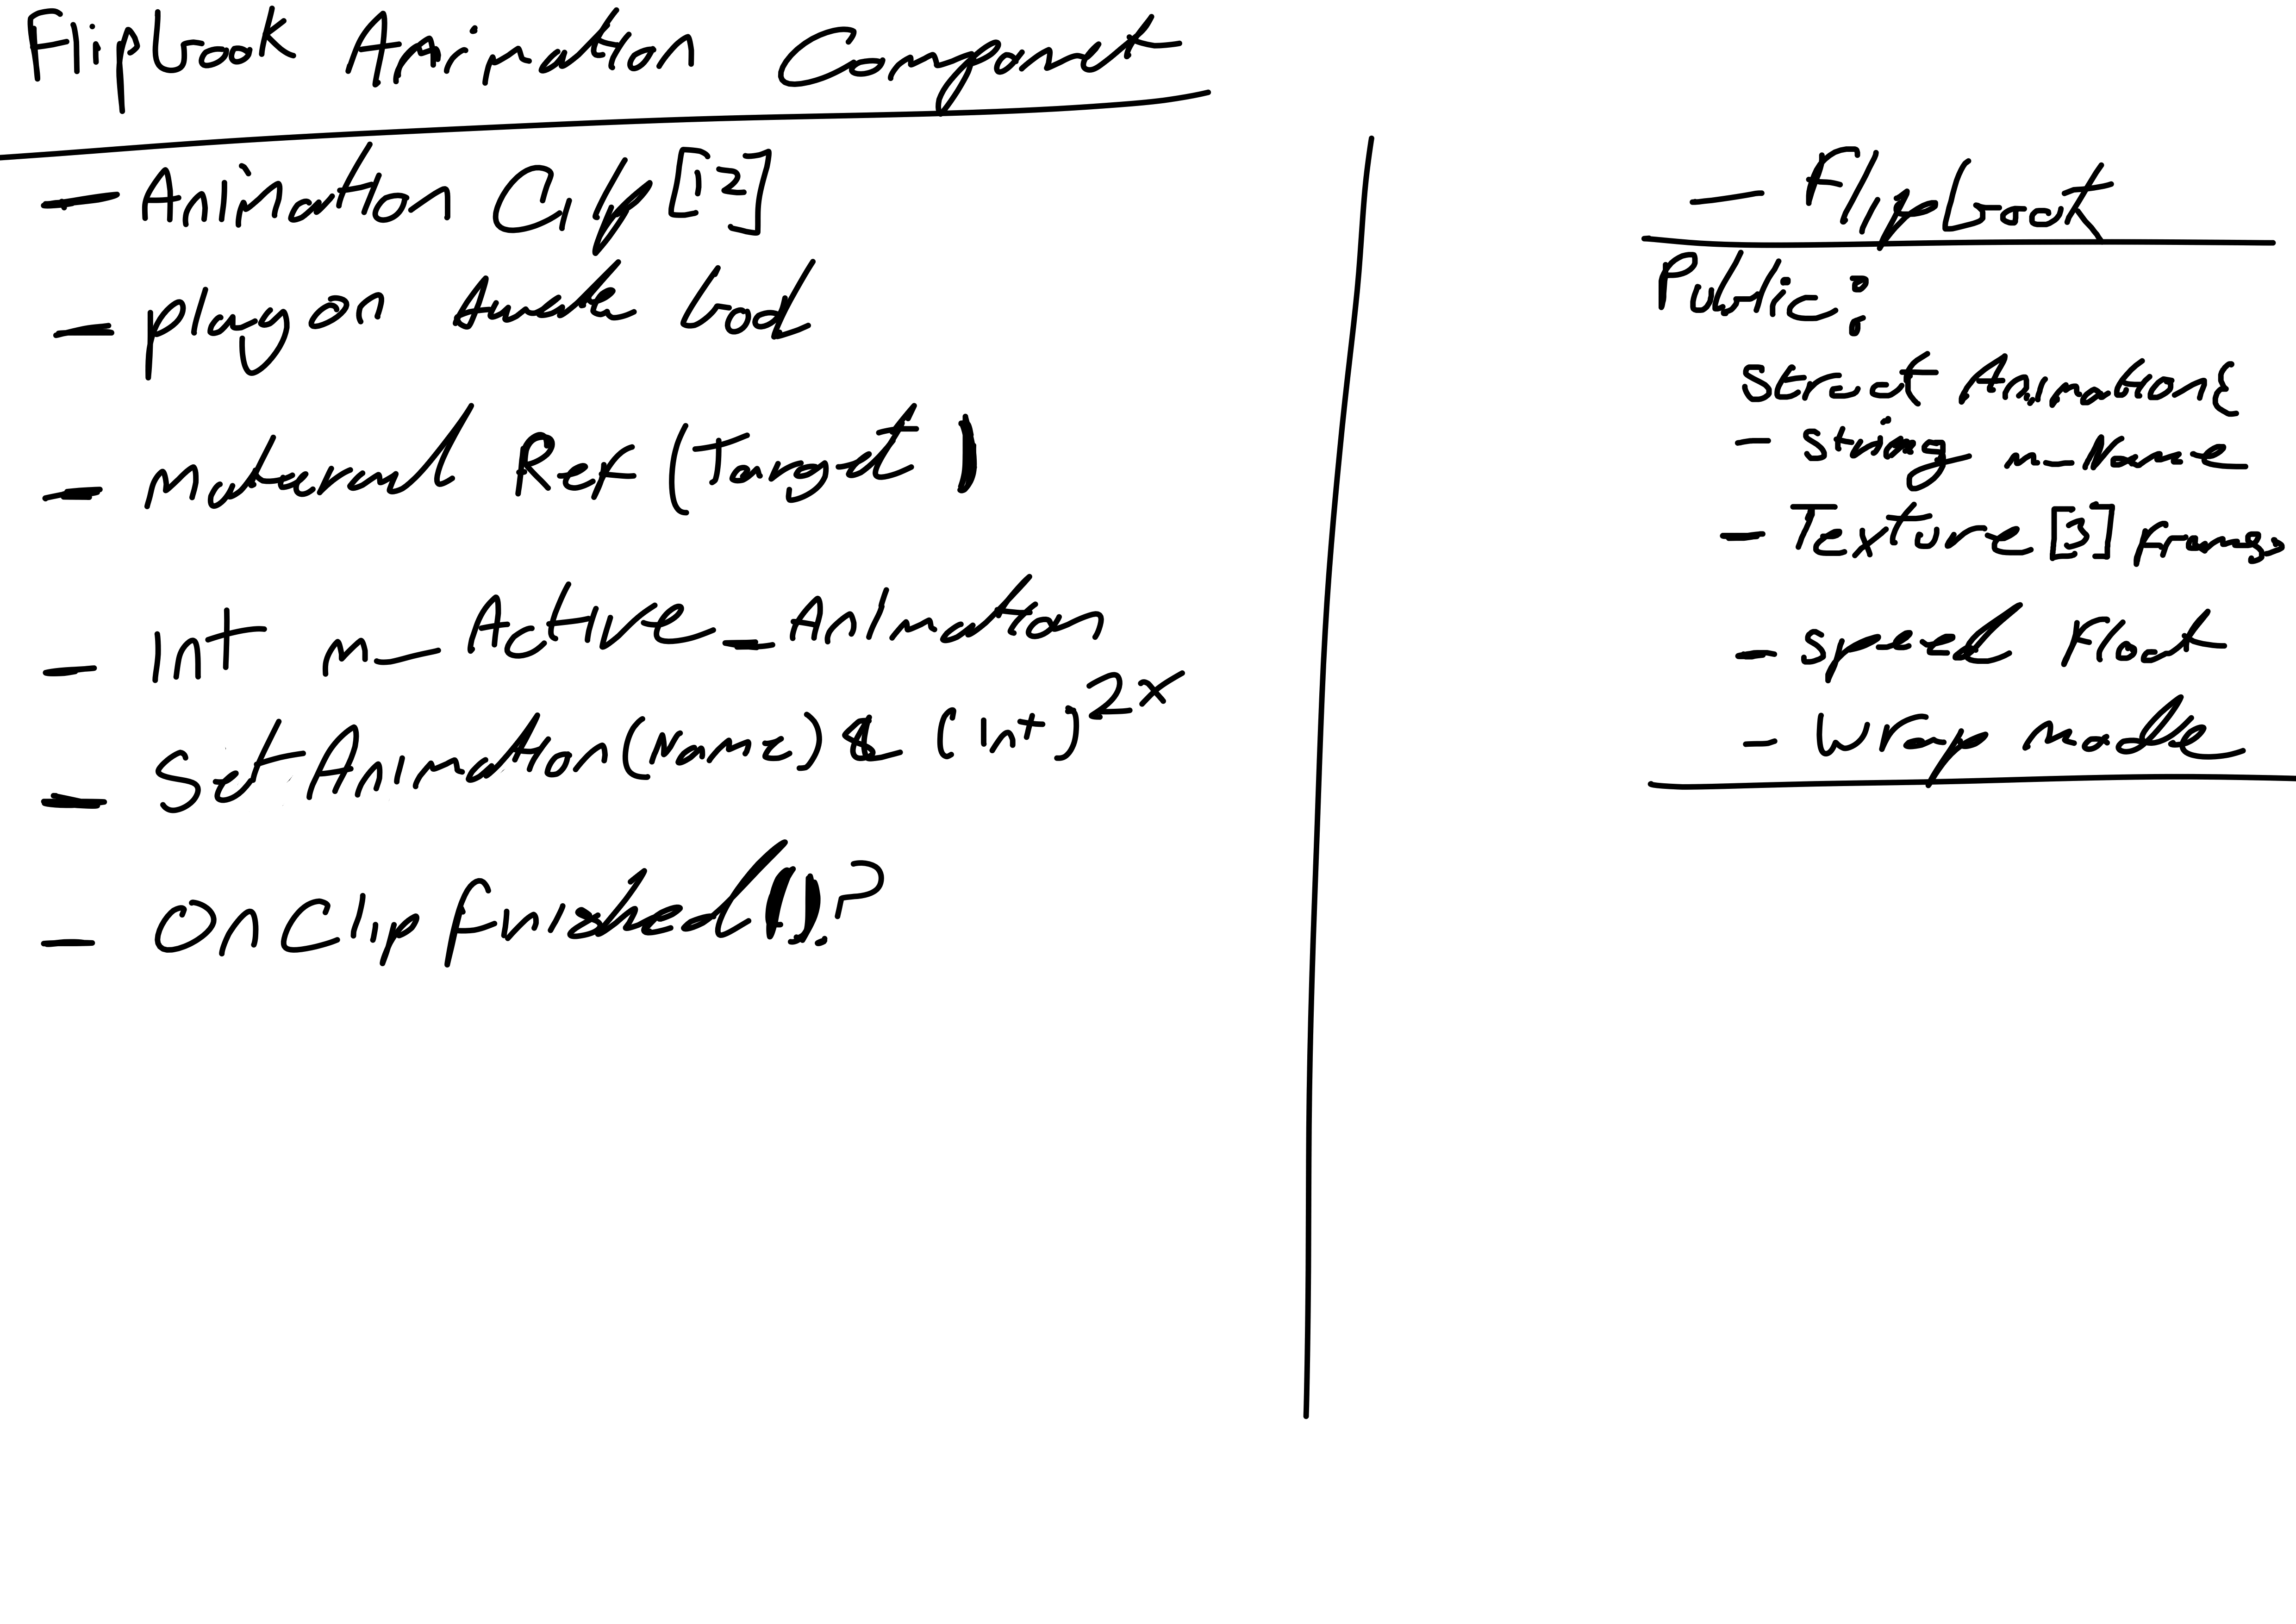 Flipbook Animation Component
- Animation Clip [12]
- play on awake bool
- material Ref (Target)
- Int m_Active_Animation
- Set Animation (Name) & (int) 2x
- On Clip finished()?
- Flipbook
Public:
Struct Animation {
- string m_Name
- Texture [3] frames
- speed float
- wrap mode